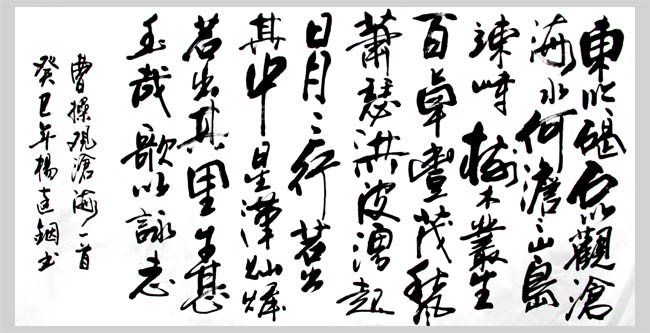 東临碣石以觀滄
海水何澹々山島
竦峙樹木叢生
百草豐茂秋風
蕭瑟洪波湧起
日月之行若出
其中星漢燦爛
若出其里幸甚
至哉歌以詠志
曹操观滄海一首
癸巳年楊達鋼书